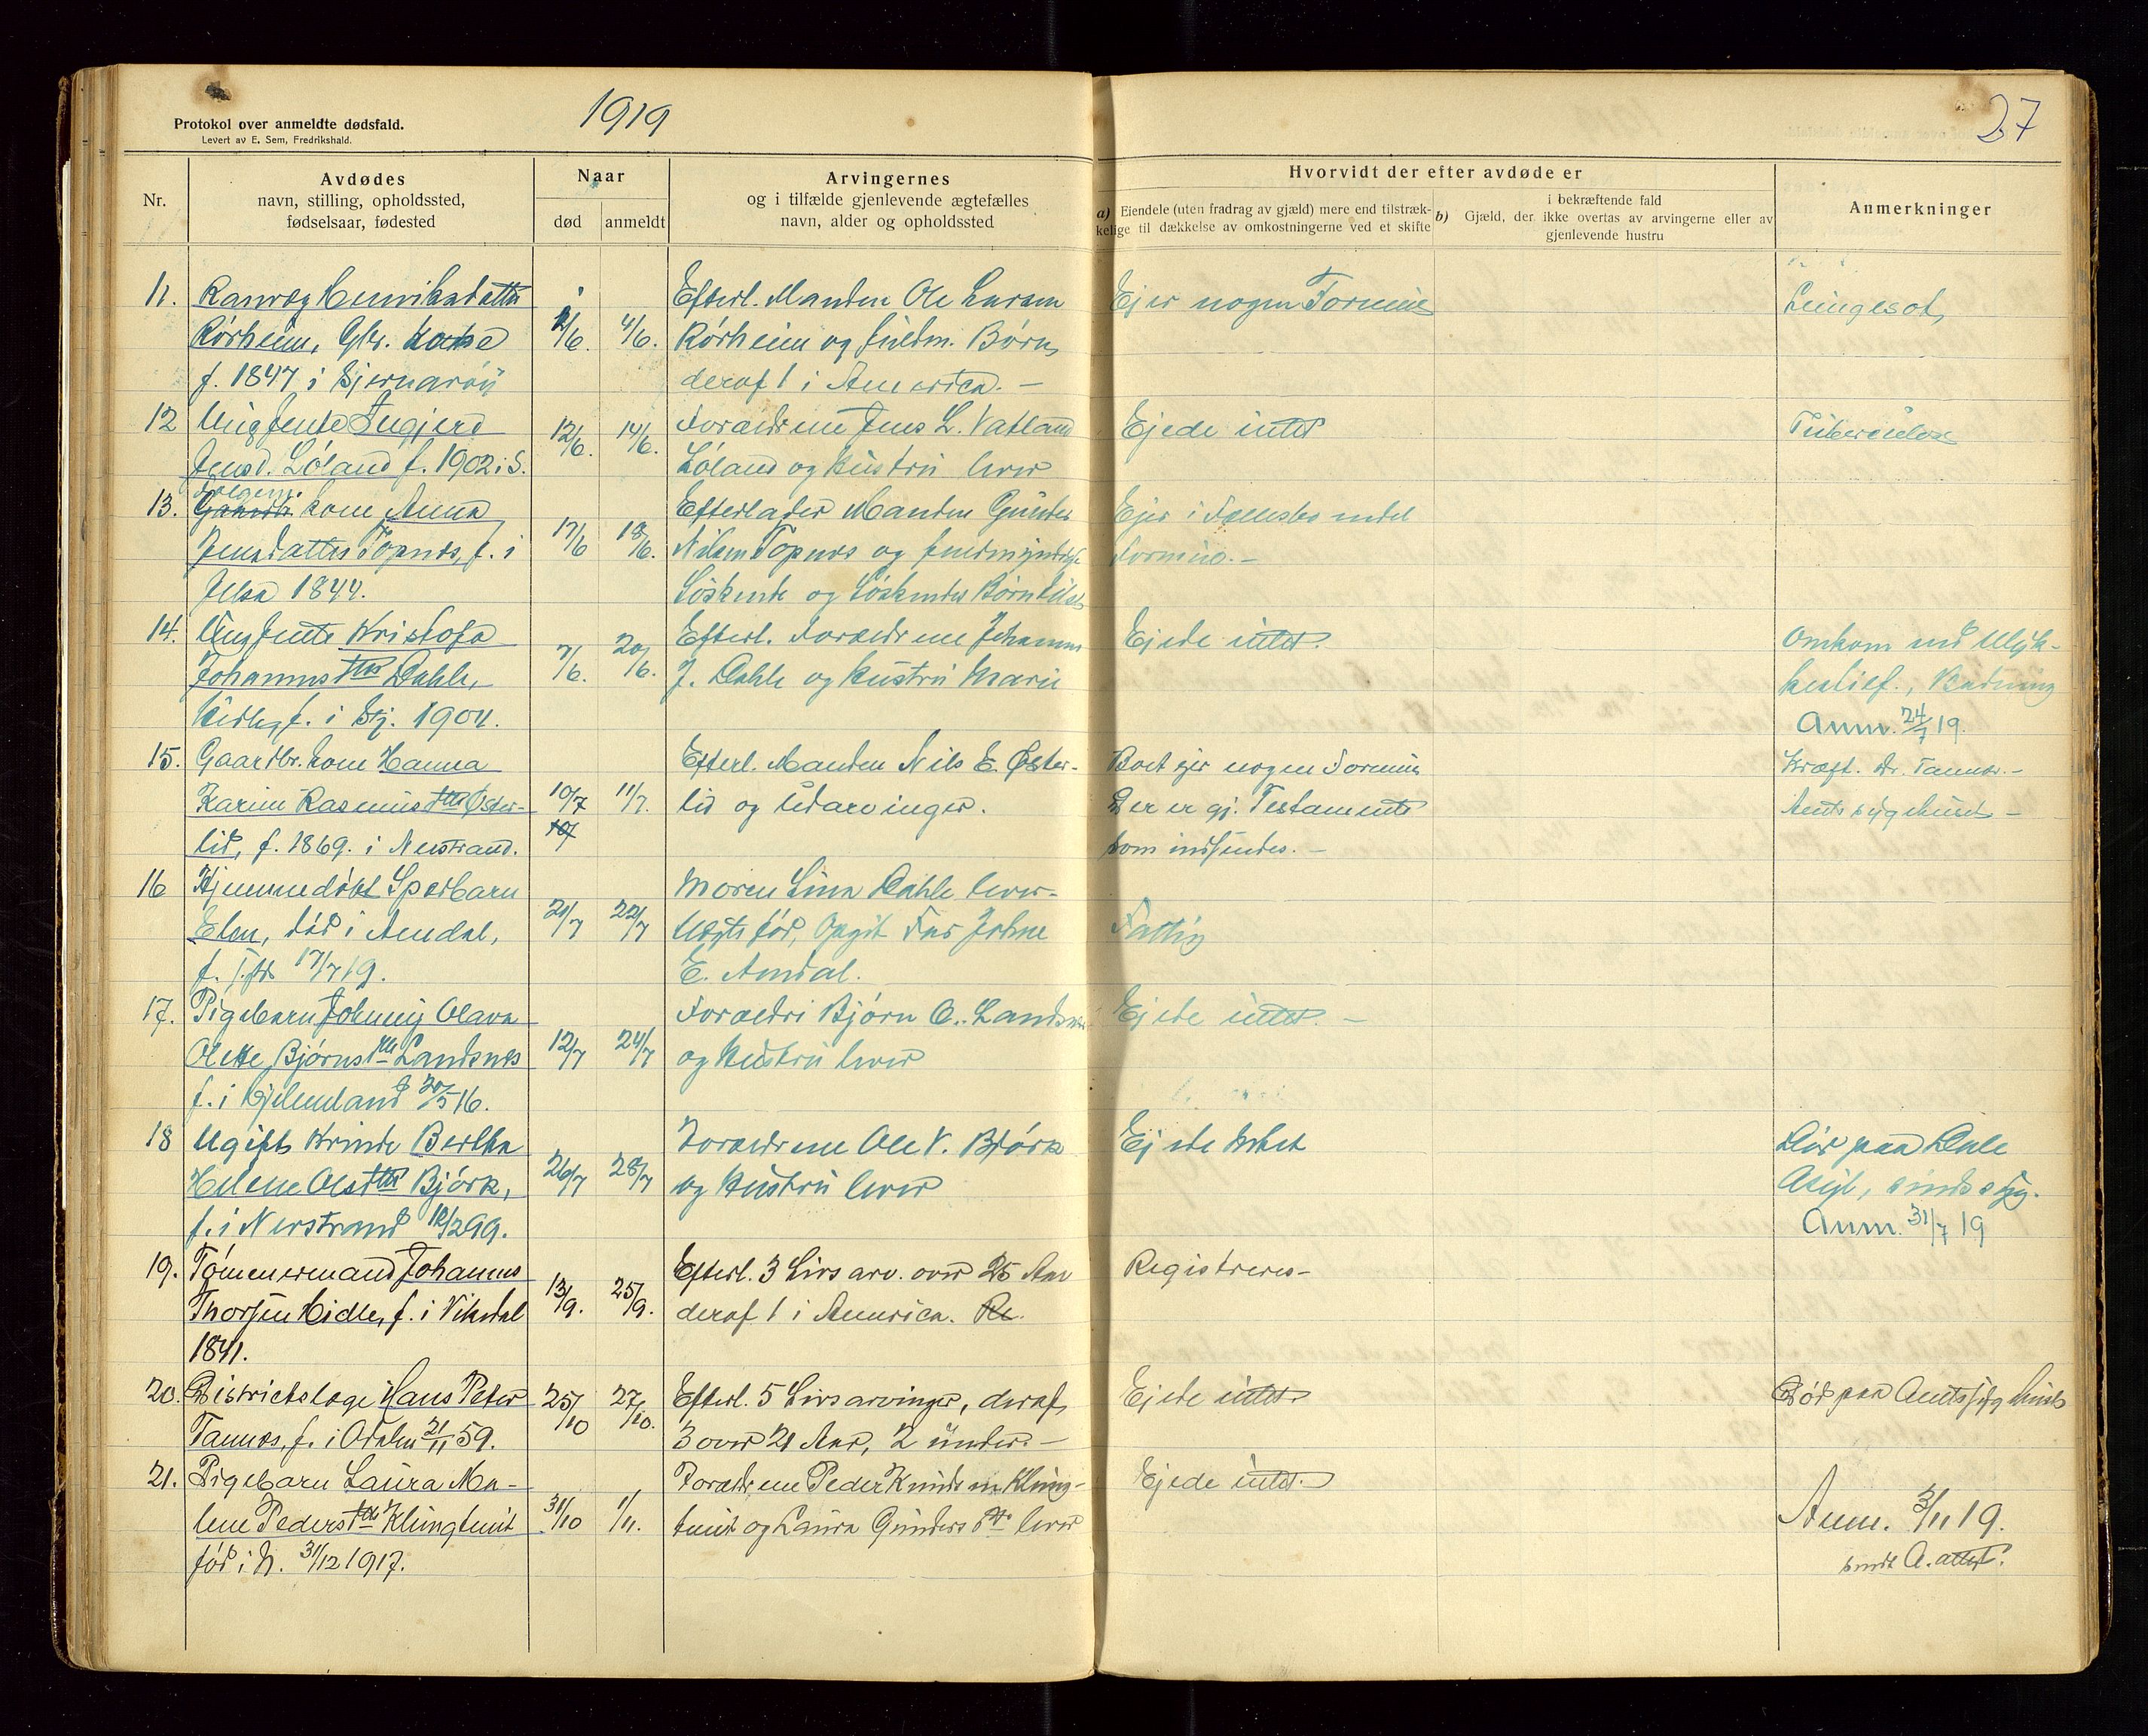 1919
27
Protokol over anmeldte dødsfald.
Levert av E. Sem, Fredrikshald.
Nr.
Avdødes
navn, stilling, opholdssted,
fødselsaar, fødested
Naar
død
anmeldt
Arvingernes
og i tilfælde gjenlevende ægtefælles
navn, alder og opholdssted
Hvorvidt der efter avdøde er
a) Eiendele (uten fradrag av gjæld) mere end tilstræk-
kelige til dækkelse av omkostningerne ved et skifte
i bekræftende fald
b) Gjæld, der ikke overtas av arvingerne eller av
gjenlevende hustru
Anmerkninger
11. Ranveg Henriksdatter
Rørheim, Gbr. kone
f. 1847 i Sjernarøy
2/6. 4/6.
Efterl. Manden Ole Larsen
Rørheim og fuldm. Børn,
deraf 1 i America. –
Ejer nogen Formue
Lungesot,
12 Ung Jente Ingjerd
Jensd. Løland f. 1902 i S.
12/6. 14/6.
Forældrene Jens L. Vatland
Løland og Hustru lever
Ejede intet
Tuberculose
13. Følgem. kone Anna
Jensdatter Topnes, f. i
Jelsa 1844.
17/6 18/6.
Efterlader Manden Gunder
Nilsen Topnes og fuldmyndige
Søskende og Søskendes Børn
Ejer i Fællesbo endel
Formue. –
14. Ung Jente Kristofa
Johannesdtr Dahle,
Hidle, f. i Stj. 1904.
7/6. 20/6.
Efterl. Forældrene Johannes
J. Dahle og Hustru Marie
Ejede intet.
Omkom ved Ulyk-
kestilf., Badning
Anm. 24/7 19.
15. Gaardbr. kone Hanna
Karine Rasmusdtr Øster-
lid, f. 1869. i Nerstrand.
10/7 11/7.
Efterl. Manden Nils E. Øster-
lid og Udarvinger.
Boet ejer nogen Formue
Der er gj. Testamente
som indsendes. –
Kræft. Dr. Tannæs. –
Amtssygehuset –
16 Hjemmedøbt Spædbarn
Elen, død i Amdal,
f. 17/7 19.
21/7 22/7
Moren Sina Dahle lever –
Uægte fød, Opgit Far Johne
E. Amdal.
Fattig
17. Pigebarn Johnny Olava
Olette Bjørnsdtr Landsnes
f. i Hjelmeland 30/5 16.
12/7 24/7
Forældre Bjørn O. Landsnes
og Hustru lever
Ejede intet. –
18 Ugift Kvinde Bertha
Helene Olsdtr Bjørk,
f. i Nerstrand 12/2 99.
26/7 28/7
Forældrene Ole V. Bjørk
og Hustru lever
Ejede Intet
Død paa Dale
Asyl, sindssyg.
Anm. 31/7 19
19. Tømmermand Johannes
Thorsen Hidle, f. i Vikedal
1841.
13/9. 25/9.
Efterl. 3 Livsarv. over 25 Aar
deraf 1 i America. Re.
Registreres –
20. Districtslæge Hans Peter
Tannæs, f. i Odalen 21/11 59.
25/10 27/10.
Efterl. 5 Livsarvinger, deraf
3 over 21 Aar, 2 under. –
Ejede intet
Død paa Amtssygehuset
21. Pigebarn Laura Ma-
lene Pedersdtr Klungtveit
fød i N. 31/12 1917.
31/10 1/11.
Forældrene Peder Knudsen Klung-
tveit og Laura Gundersdtr lever
Ejede intet. –
Anm. 3/11 19.
sendt A. attest.